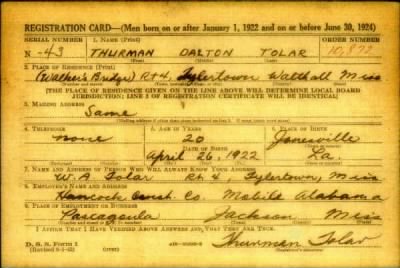 REGISTRATION CARD—(Men born on or after January 1, 1922 and on or before June 30, 1924)
SERIAL NUMBER 1. NAME (Print) ORDER NUMBER
N -43 THURMAN DALTON TOLAR 10,872
2. PLACE OF RESIDENCE (Print)
(Walker's Bridge) Rt 4, Tylertown Walthall Miss
(THE PLACE OF RESIDENCE GIVEN ON THE LINE ABOVE WILL DETERMINE LOCAL BOARD
JURISDICTION; LINE 2 OF REGISTRATION CERTIFICATE WILL BE IDENTICAL)
3. MAILING ADDRESS
Same
4. TELEPHONE 5. AGE IN YEARS 6. PLACE OF BIRTH
none 20 Jonesville
DATE OF BIRTH
April 26, 1922 La.
7. NAME AND ADDRESS OF PERSON WHO WILL ALWAYS KNOW YOUR ADDRESS
W. A. Tolar Rt 4, Tylertown, Miss
8. EMPLOYER'S NAME AND ADDRESS
Hancock Const. Co. Mobile Alabama
9. PLACE OF EMPLOYMENT OR BUSINESS
Pascagoula Jackson Miss
I AFFIRM THAT I HAVE VERIFIED ABOVE ANSWERS AND THAT THEY ARE TRUE.
D. S. S. Form 1
Thurman Tolar